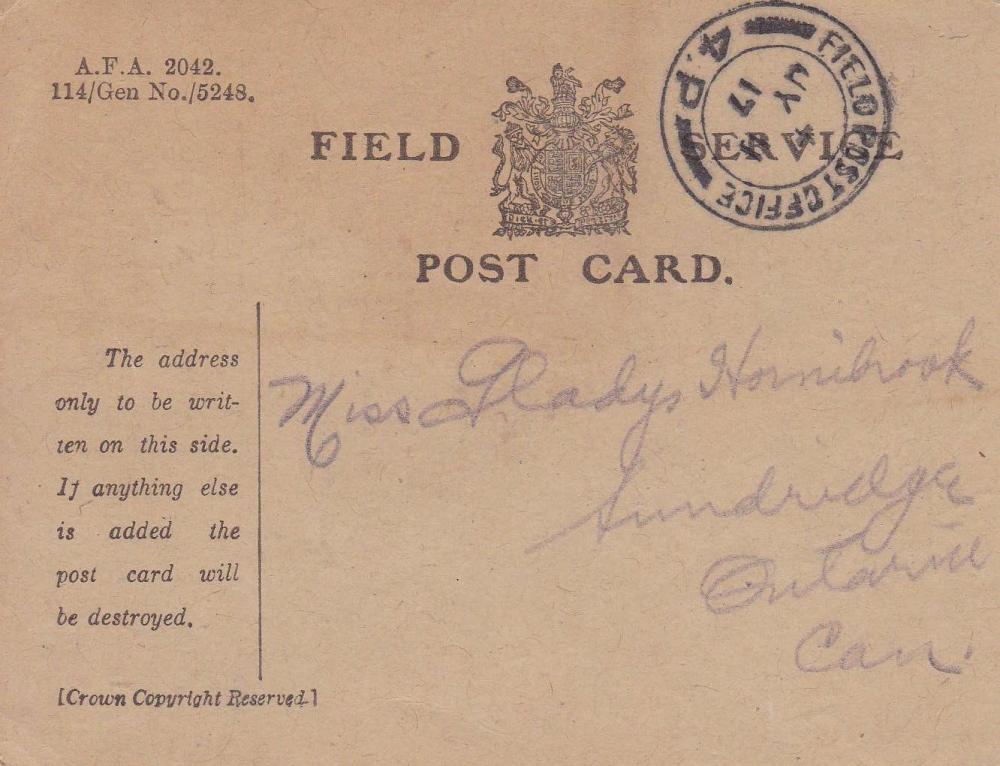 A.F.A. 2042.
114/Gen No./5248.
FIELD SERVICE
POST CARD.
FIELD POST OFFICE
4.P
JY
17
The address
only to be writ-
ten on this side.
If anything else
is added the
post card will
be destroyed.
[Crown Copyright Reserved.]
Miss Gladys Hornibrook
Sundridge
Ontario
Can.